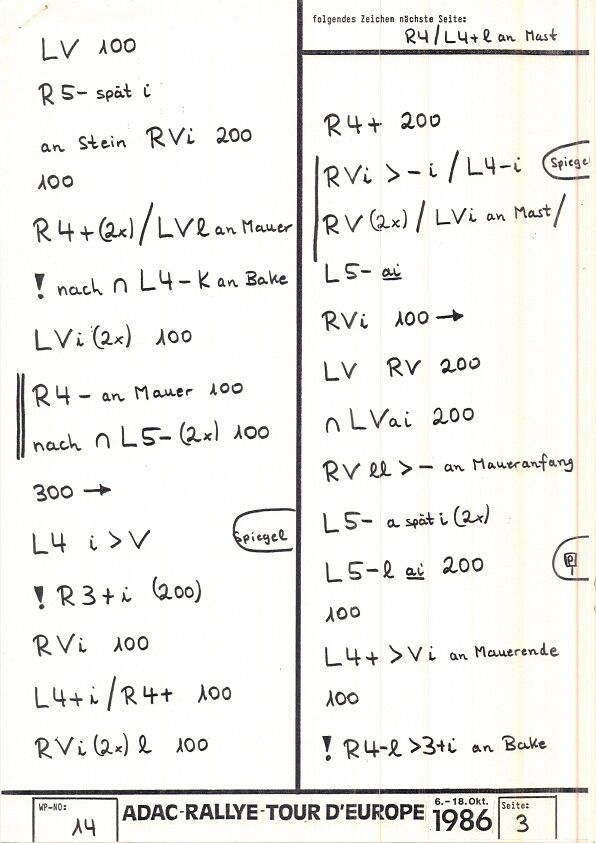 LV 100
R5- spät i
an Stein RVi 200
100
R4+(2x)/LVl an Mauer
! nach ∩ L4-K an Bake
LVi(2x) 100
R4- an Mauer 100
nach ∩ L5-(2x) 100
300 →
L4 i>V Spiegel
! R3+i (200)
RVi 100
L4+i/R4+ 100
RVi(2x) l 100
folgendes Zeichen nächste Seite:
R4/L4+l an Mast
R4+ 200
RVi >-i/L4-i Spiegel
RV(2x)/LVi an Mast/
L5- ai
RVi 100 →
LV RV 200
∩ LVai 200
RV ll >- an Maueranfang
L5- a spät i (2x)
L5-l ai 200 P
100
L4+ >Vi an Mauerende
100
! R4-l >3+i an Bake
WP-NO: 14
ADAC-RALLYE-TOUR D'EUROPE 6.-18.Okt. 1986
Seite: 3